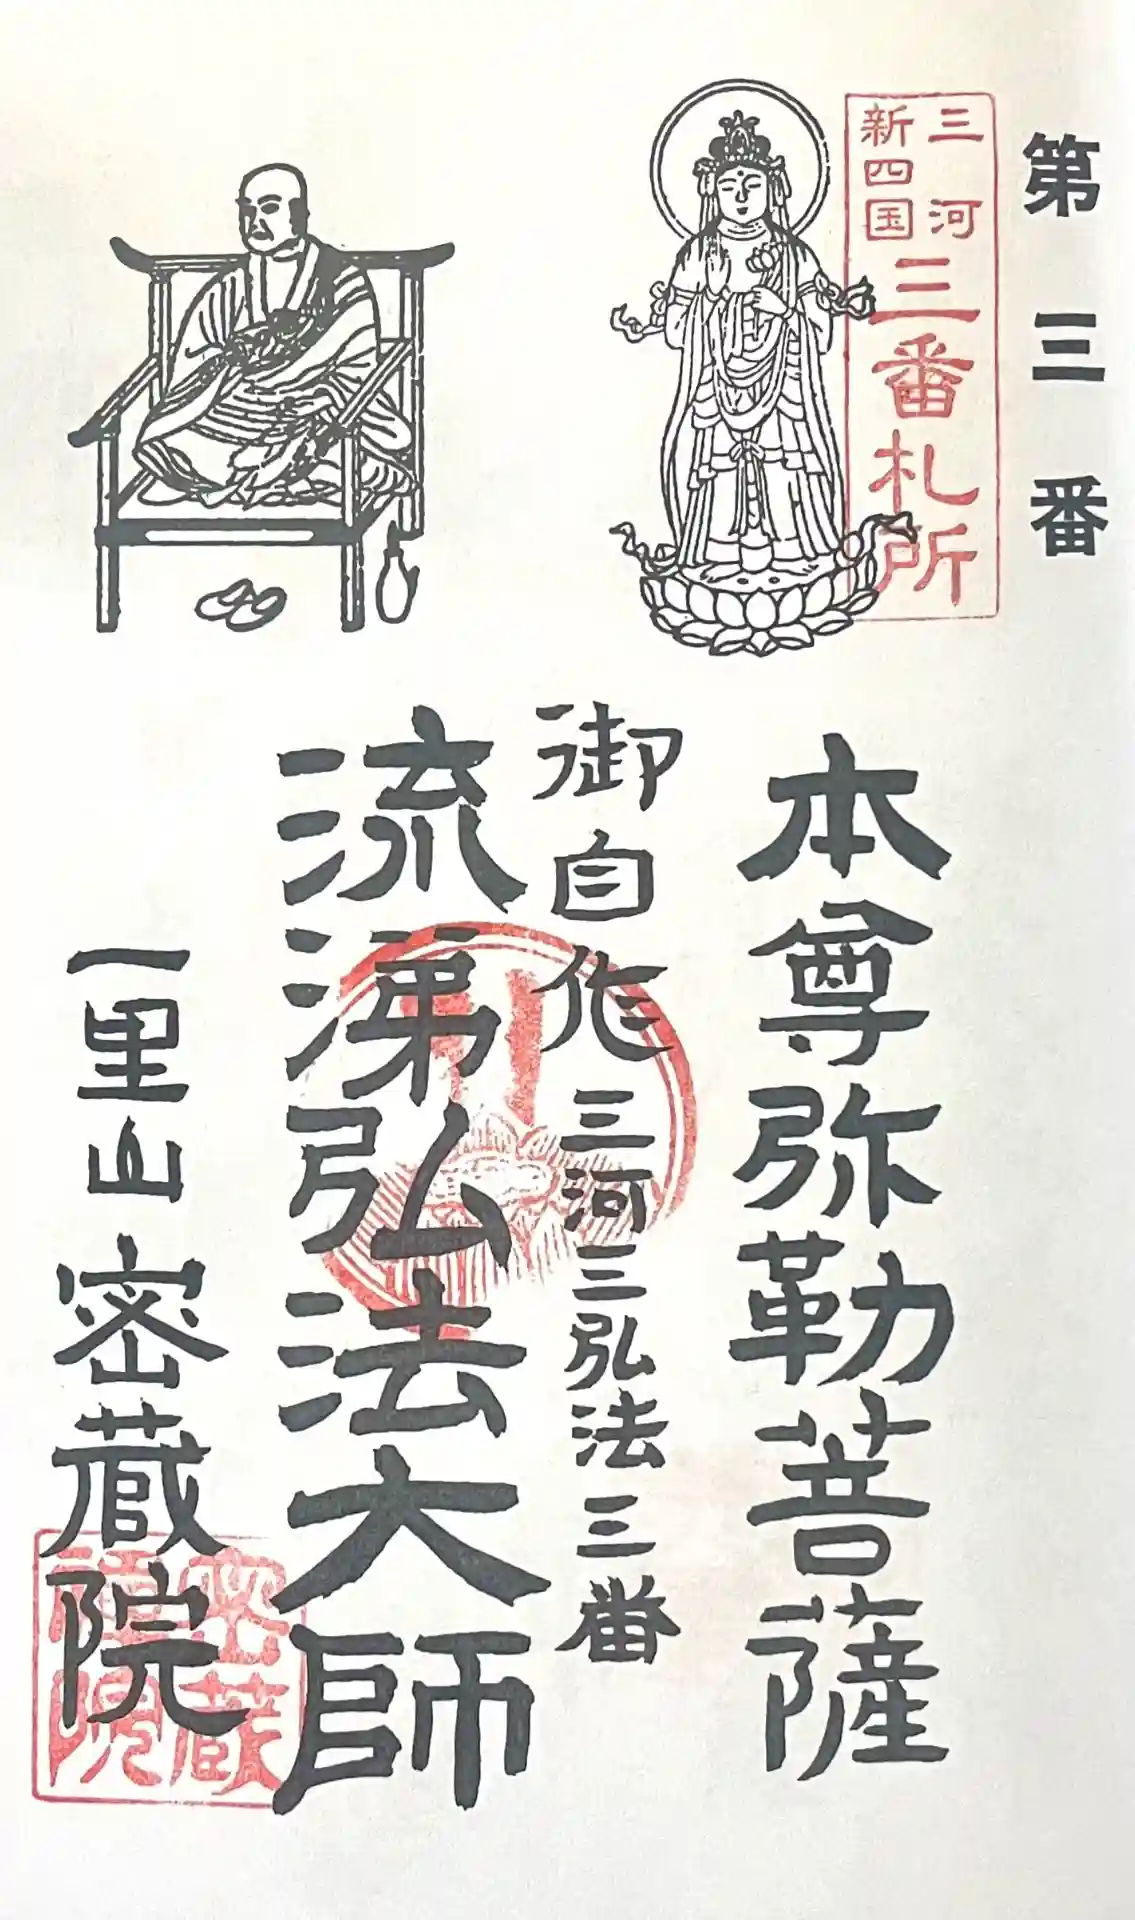 第三番
三河
新四国
三番札所
本尊弥勒菩薩
御自作三河三弘法三番
流涕弘法大師
一里山密蔵院
密蔵